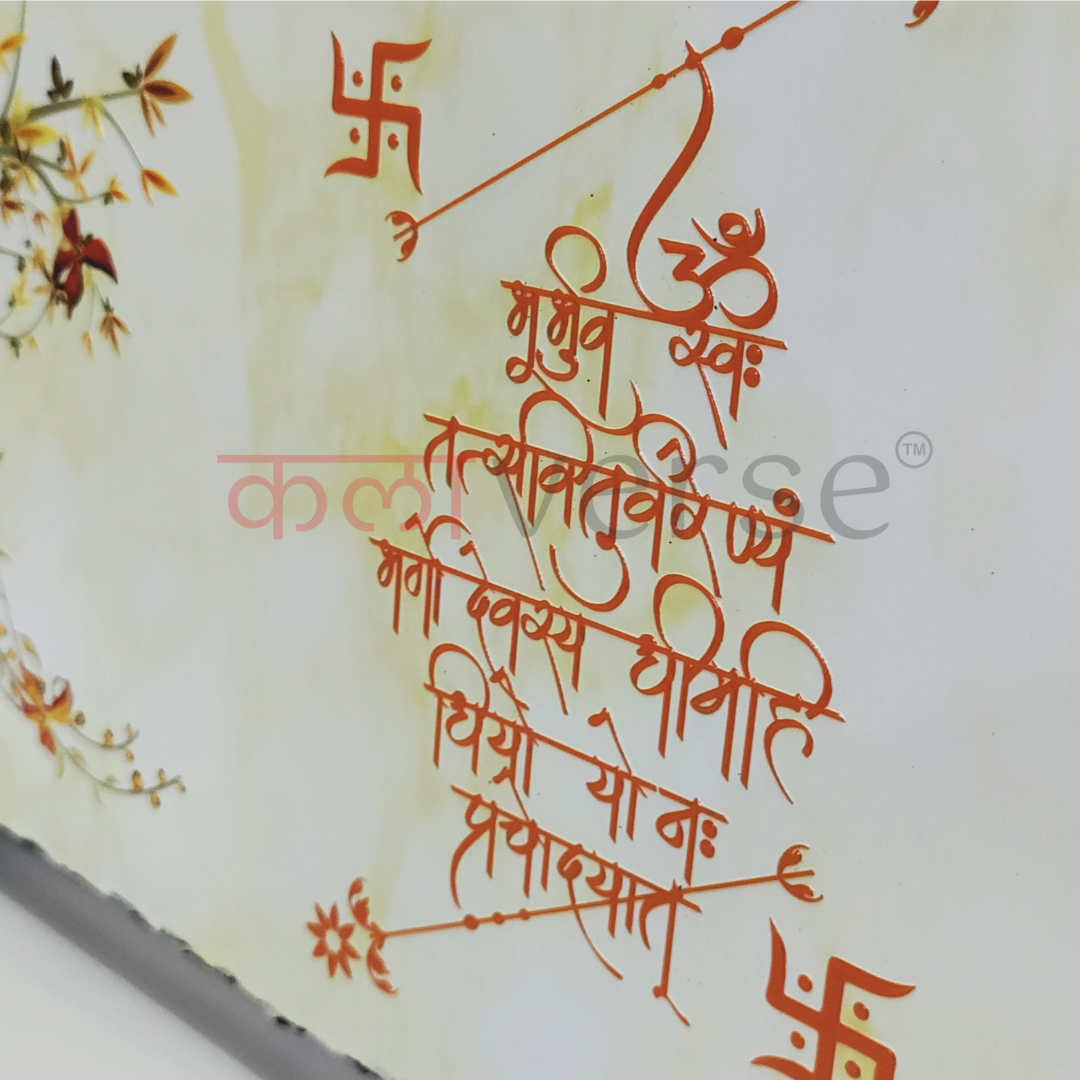 ॐ
भूर्भुव स्वः
तत्सवितुर्वरेण्यं
भर्गो देवस्य धीमहि
धियो यो नः
प्रचोदयात्
कलाverse™